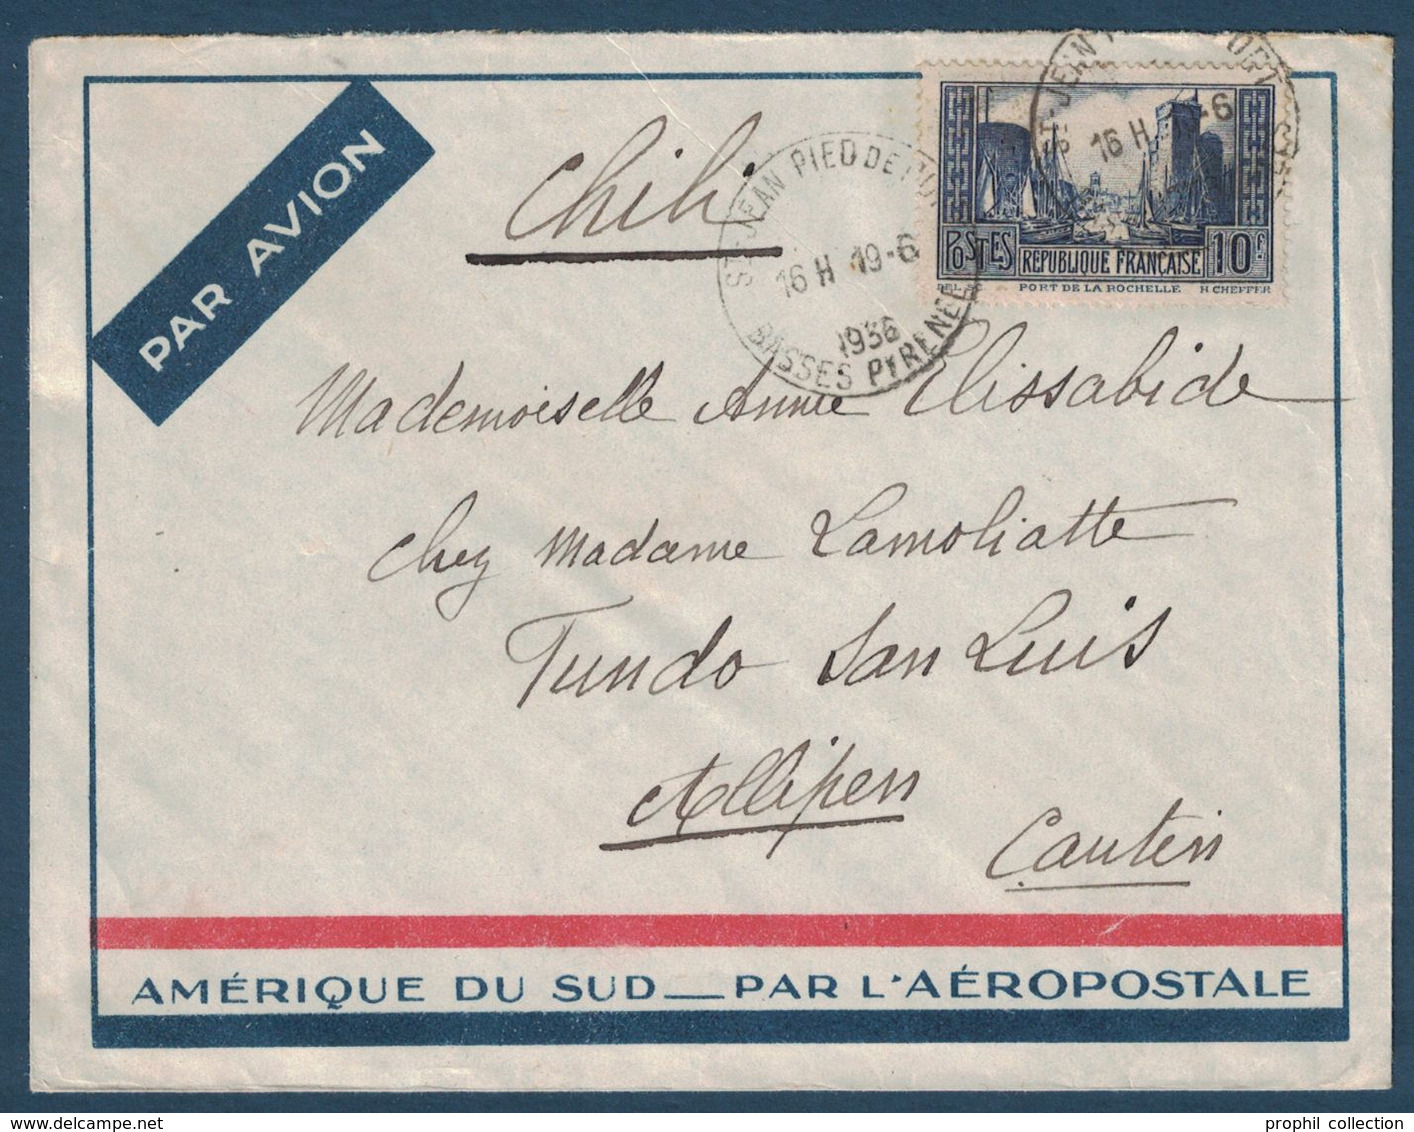 PAR AVION
Chili
ST-JEAN PIED DE PORT
16 H 19-6
1936
BASSES PYRENEES
16 H
POSTES
RÉPUBLIQUE FRANÇAISE
10F.
DEL.
PORT DE LA ROCHELLE
H CHEFFER
Mademoiselle Annie Elissabide
chez Madame Lamoliatte
Fundo San Luis
Allipen
Cautin
AMÉRIQUE DU SUD__PAR L'AÉROPOSTALE
prophil collection